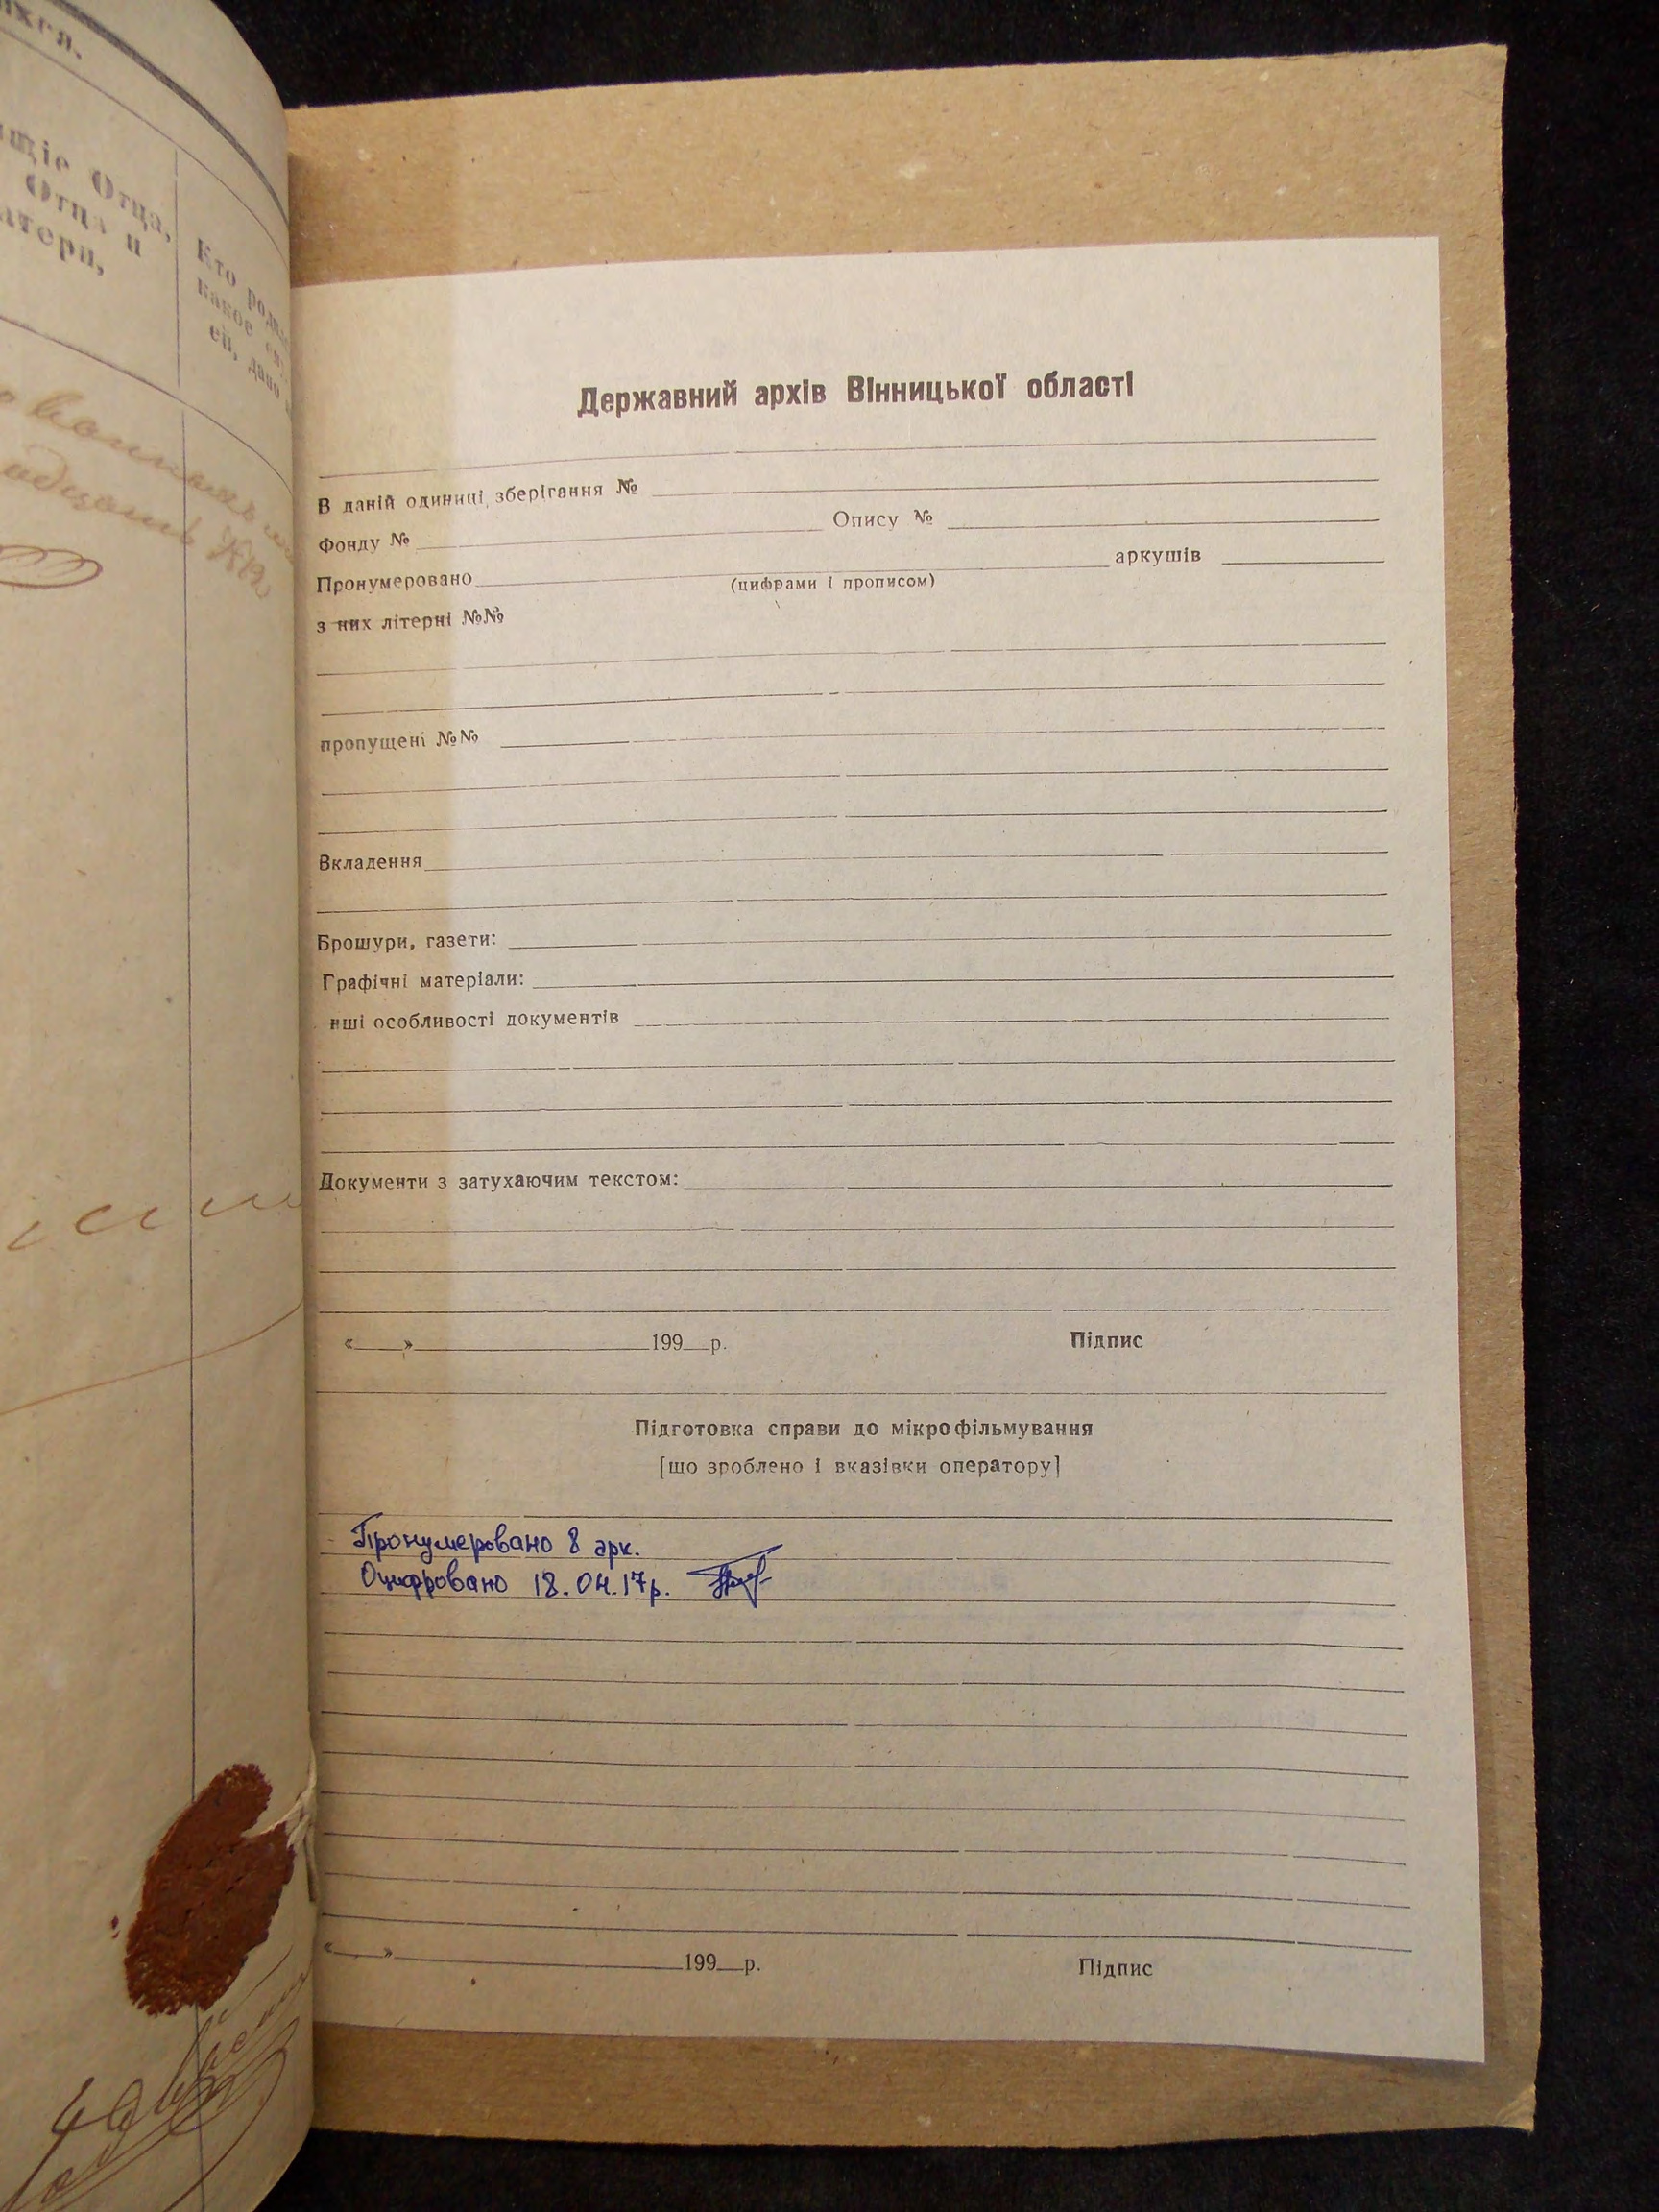 Отца,
Отца и
Кто
Державний архів Вінницької області
В даній одиниці зберігання №
Фонду № Опису №
Пронумеровано аркушів
(цифрами і прописом)
з них літерні №№
пропущені №№
Вкладення
Брошури, газети:
Графічні матеріали:
нші особливості документів
Документи з затухаючим текстом:
«___»___199__р. Підпис
Підготовка справи до мікрофільмування
[що зроблено і вказівки оператору]
Пронумеровано 8 арк.
Оцифровано 18.04.17р.
«___»___199__р. Підпис